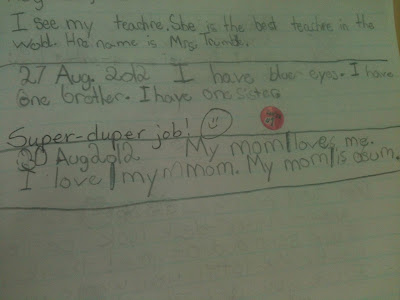 I see my teachre. She is the best teachre in the
wold. Hre name is Mrs.
27 Aug. 2012 I have blue eyes. I have
one brother. I have one sister.
Super-duper job!
30 Aug 2012 My mom loves me.
I love my mom. My mom is asum.